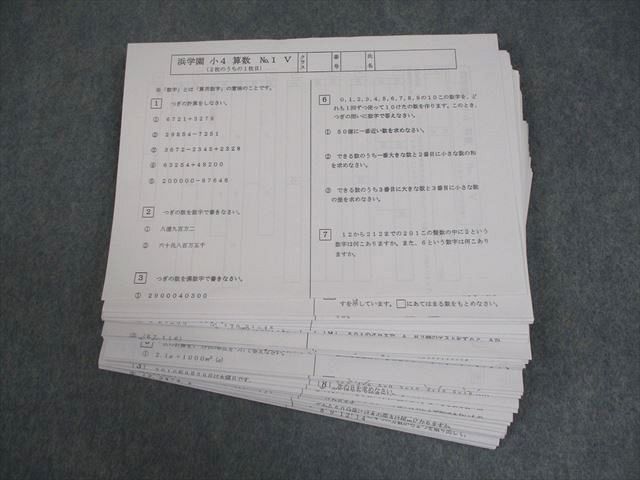 浜学園 小4 算数 No.1 V
(2枚のうちの1枚目)
クラス
番号
氏名
※「数字」とは「算用数字」の意味のことです。
1 つぎの計算をしなさい。
① 6721+3279
② 29854-7251
③ 3672-2345+2328
④ 63254+48200
⑤ 200000-87648
2 つぎの数を数字で書きなさい。
① 八億九百万二
② 六十兆八百万五千
3 つぎの数を漢数字で書きなさい。
① 2900040300
6 0,1,2,3,4,5,6,7,8,9の10この数字を,ど
れも1回ずつ使って10けたの数を作ります。このとき,
つぎの問いに数字で答えなさい。
① 50億に一番近い数を求めなさい。
② できる数のうち一番大きな数と2番目に小さな数の和
を求めなさい。
③ できる数のうち3番目に大きな数と3番目に小さな数
の差を求めなさい。
7 12から212までの201この整数の中に2という
数字は何こありますか。また,6という数字は何こあり
ますか。
すを示しています。□にあてはまる数をもとめなさい。
① 2.1a+1000m²(a)
8,9,12,14